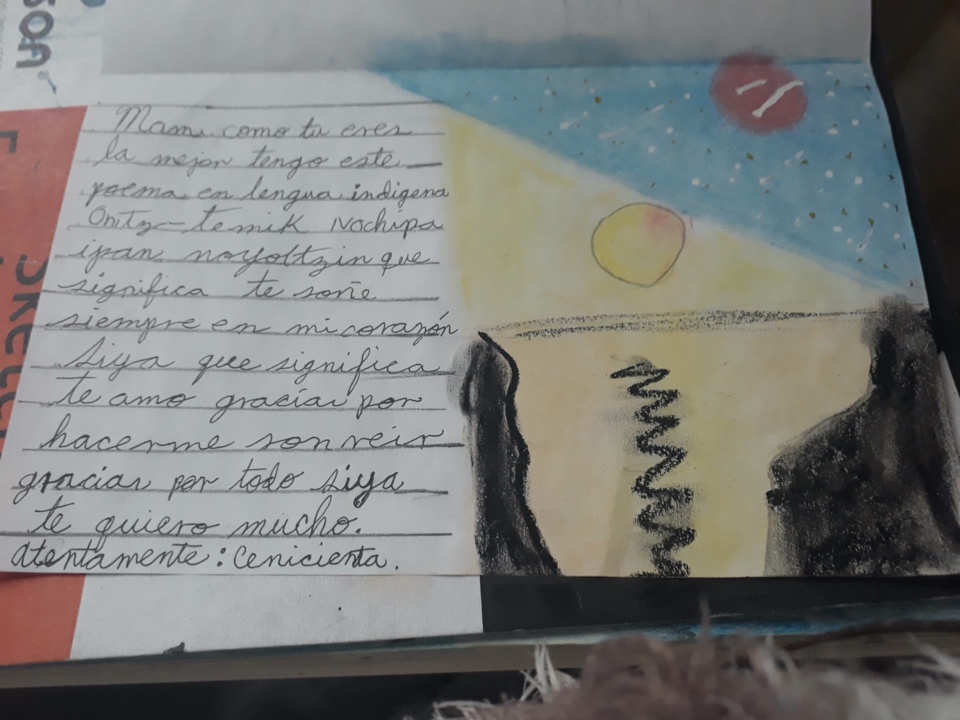 Mami como tu eres
la mejor tengo este
poema en lengua indigena
Onitz-temik Nochipa
ipan noyoltzin que
significa te soñe
siempre en mi corazón
Siya que significa
te amo gracias por
hacerme sonreir
gracias por todo siya
te quiero mucho.
Atentamente: Cenicienta.